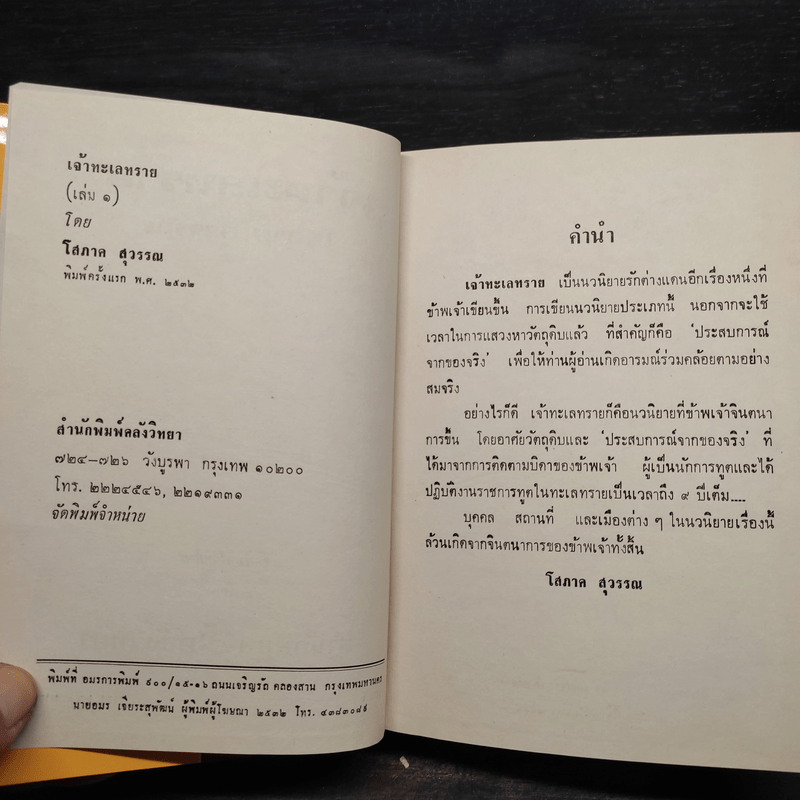 เจ้าทะเลทราย
(เล่ม ๑)
โดย
โสภาค สุวรรณ
พิมพ์ครั้งแรก พ.ศ. ๒๕๓๒
สำนักพิมพ์คลังวิทยา
๗๒๔-๗๒๖ วังบูรพา กรุงเทพ ๑๐๒๐๐
โทร. ๒๒๒๔๕๔๖, ๒๒๑๙๓๓๑
จัดพิมพ์จำหน่าย
พิมพ์ที่ อมรการพิมพ์ ๙๐๐/๑๕-๑๖ ถนนเจริญรัถ คลองสาน กรุงเทพมหานคร
นายอมร เจียระสุพัฒน์ ผู้พิมพ์ผู้โฆษณา ๒๕๓๒ โทร. ๔๓๘๓๐๘๙
คำนำ
เจ้าทะเลทราย เป็นนวนิยายรักต่างแดนอีกเรื่องหนึ่งที่
ข้าพเจ้าเขียนขึ้น การเขียนนวนิยายประเภทนี้ นอกจากจะใช้
เวลาในการแสวงหาวัตถุดิบแล้ว ที่สำคัญก็คือ ‘ประสบการณ์
จากของจริง’ เพื่อให้ท่านผู้อ่านเกิดอารมณ์ร่วมคล้อยตามอย่าง
สมจริง
อย่างไรก็ดี เจ้าทะเลทรายก็คือนวนิยายที่ข้าพเจ้าจินตนา
การขึ้น โดยอาศัยวัตถุดิบและ ‘ประสบการณ์จากของจริง’ ที่
ได้มาจากการติดตามบิดาของข้าพเจ้า ผู้เป็นนักการทูตและได้
ปฏิบัติงานราชการทูตในทะเลทรายเป็นเวลาถึง ๙ ปีเต็ม....
บุคคล สถานที่ และเมืองต่าง ๆ ในนวนิยายเรื่องนี้
ล้วนเกิดจากจินตนาการของข้าพเจ้าทั้งสิ้น
โสภาค สุวรรณ